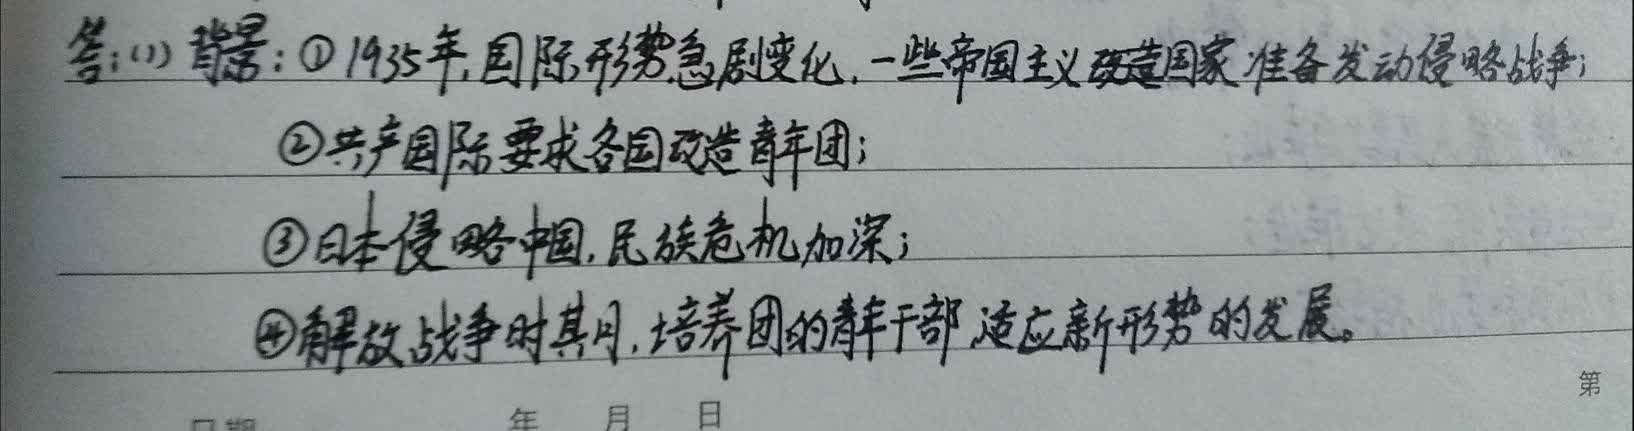 答:(1)背景:①1935年,国际形势急剧变化,一些帝国主义改造国家准备发动侵略战争;
②共产国际要求各国改造青年团;
③日本侵略中国,民族危机加深;
④解放战争时其月,培养团的青年干部适应新形势的发展。
第
日期 年 月 日